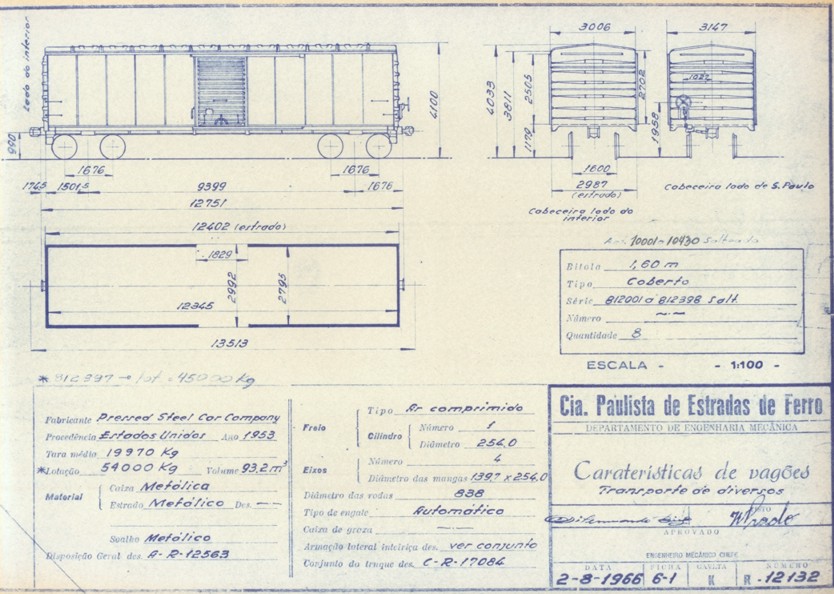 Lado do interior
990
4100
1676
1676
1765
1501,5
9399
1676
12751
12402 (estrado)
1829
2992
2795
12345
13513
3006
3147
4033
3811
2505
1170
2702
1027
1958
1600
2987
(estrado)
Cabeceira lado do
interior
Cabeceira lado de S. Paulo
10001-10430
Bitola 1,60 m
Tipo Coberto
Série 812001 a 812398 Salt.
Número —·—
Quantidade 8
ESCALA - - 1:100 -
* 812397 → lot. = 45000 Kg
Fabricante Pressed Steel Car Company
Procedência Estados Unidos Ano 1953
Tara média 19970 Kg
*Lotação 54000 Kg Volume 93,2 m³
Material
Caixa Metálica
Estrado Metálico Des. —
Soalho Metálico
Disposição Geral des. A-R-12563
Freio
Tipo Ar comprimido
Cilindro
Número 1
Diâmetro 254,0
Eixos
Número 4
Diâmetro das mangas 139,7 x 254,0
Diâmetro das rodas 838
Tipo de engate Automático
Caixa de graxa —
Armação lateral inteiriça des. ver conjunto
Conjunto do truque des. C-R-17084
Cia. Paulista de Estradas de Ferro
DEPARTAMENTO DE ENGENHARIA MECÂNICA
Caraterísticas de vagões
Transporte de diversos
VISTO
APROVADO
ENGENHEIRO MECÂNICO CHEFE
DATA FICHA GAVETA NÚMERO
2-8-1966 6-1 K R-12132